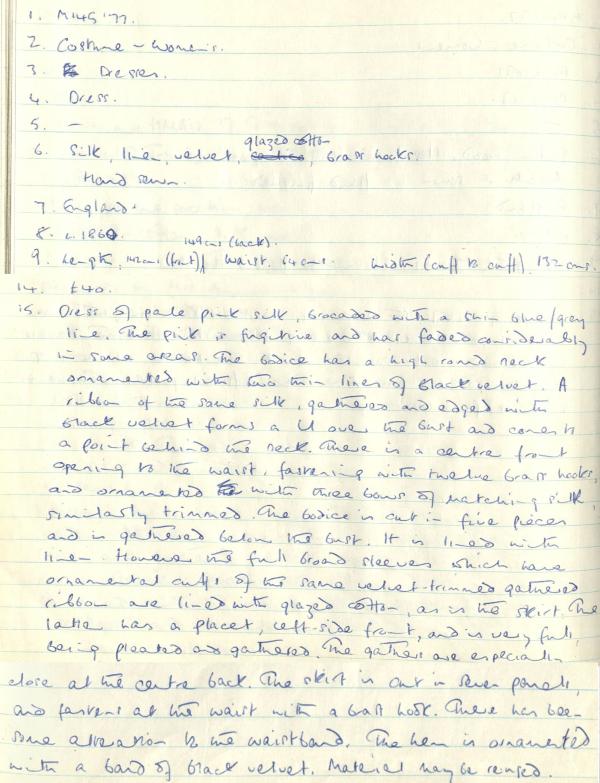 1. M145'77.
2. Costume - Women's.
3. Dresses.
4. Dress.
5. -
glazed cotton
6. Silk, linen, velvet, , brass hooks.
Hand sewn.
7. England.
8. c. 1860.
149cms (back).
9. Length, 142cms (front), Waist. 64cms. Width (cuff to cuff). 132 cms.
14. £40.
15. Dress of pale pink silk, brocaded with a thin blue/grey
line. The pink is fugitive and has faded considerably
in some areas. The bodice has a high round neck
ornamented with two thin lines of black velvet. A
ribbon of the same silk, gathered and edged with
black velvet forms a U over the bust and comes to
a point behind the neck. There is a centre front
opening to the waist, fastening with twelve brass hooks,
and ornamented with three bows of matching silk,
similarly trimmed. The bodice is cut in five pieces
and is gathered below the bust. It is lined with
linen. However the full broad sleeves which have
ornamental cuffs of the same velvet-trimmed gathered
ribbon are lined with glazed cotton, as is the skirt. The
latter has a placket, left-side front, and is very full,
being pleated and gathered. The gathers are especially
close at the centre back. The skirt is cut in seven panels,
and fastens at the waist with a brass hook. There has been
some alteration to the waistband. The hem is ornamented
with a band of black velvet. Material may be reused.